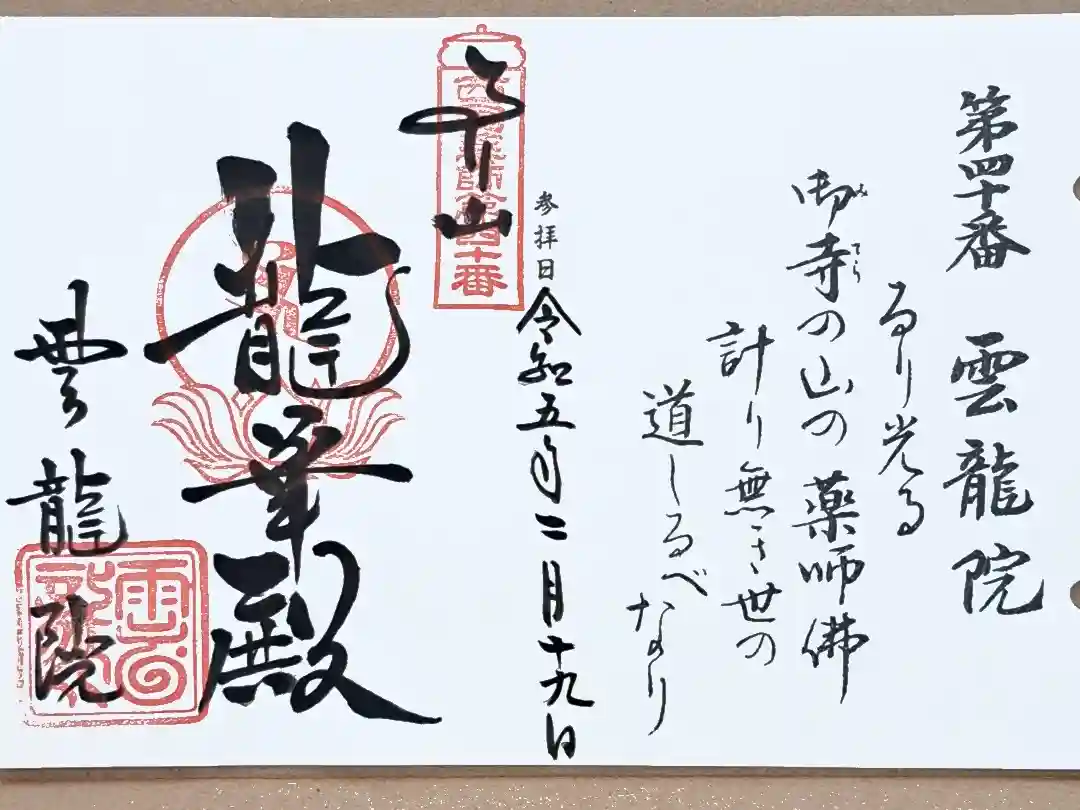 第四十番 雲龍院
るり光る
御寺の山の薬師佛
みてら
計り無き世の
道しるべなり
参拝日 令和五年二月十九日
西国薬師第四十番
るり山
龍華殿
雲龍院